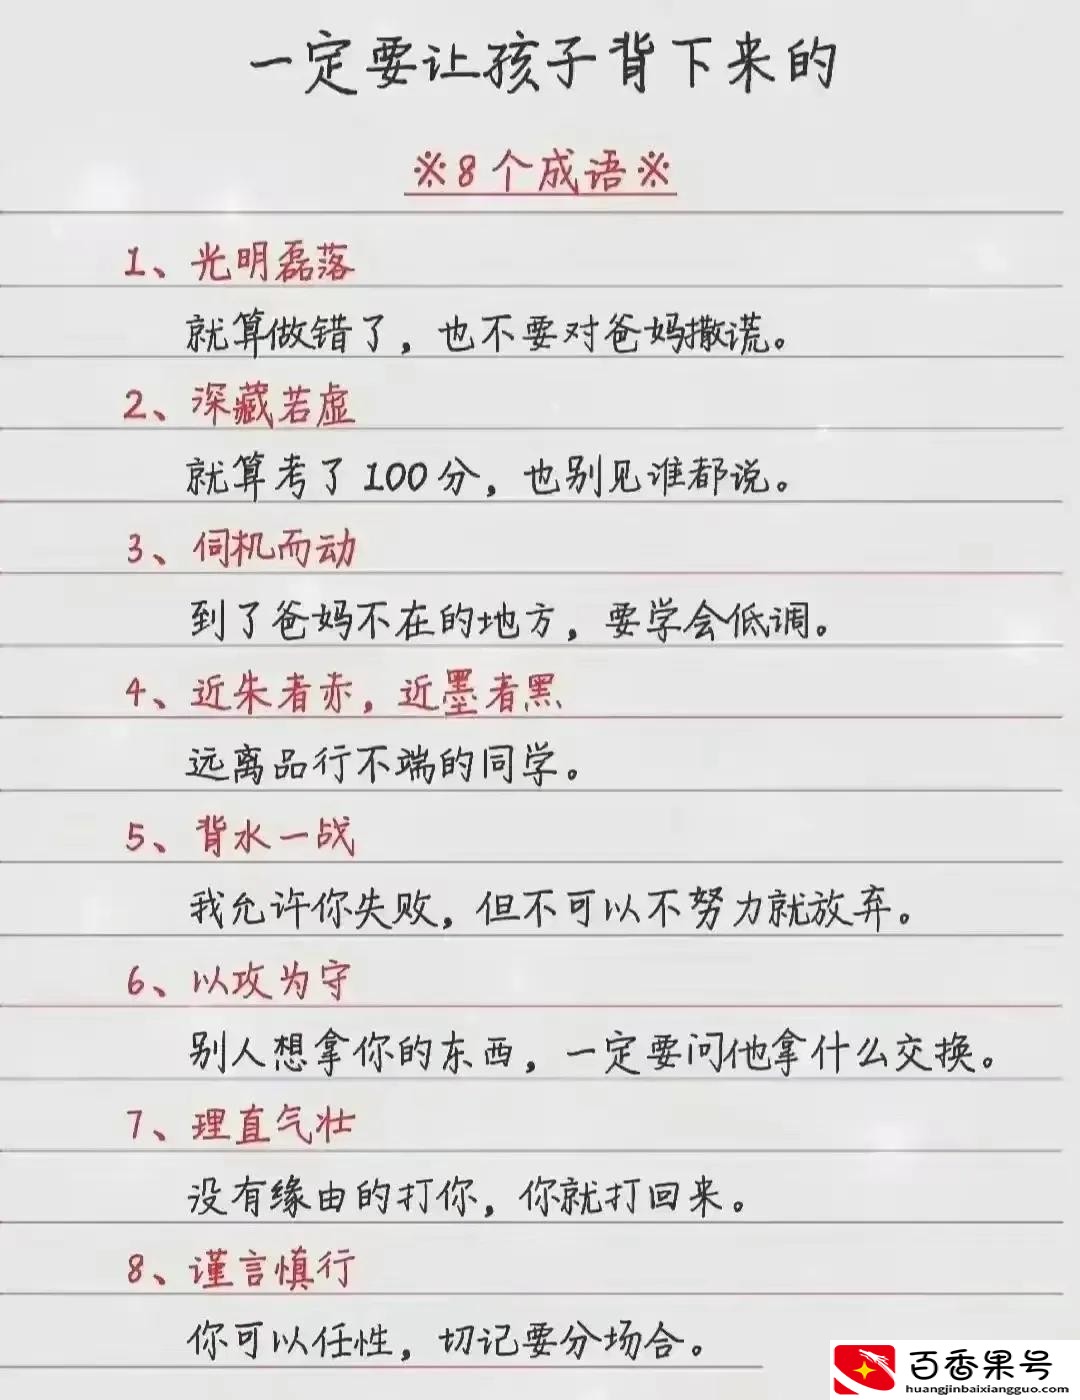 一定要让孩子背下来的
※8个成语※
1、光明磊落
就算做错了，也不要对爸妈撒谎。
2、深藏若虚
就算考了100分，也别见谁都说。
3、伺机而动
到了爸妈不在的地方，要学会低调。
4、近朱者赤，近墨者黑
远离品行不端的同学。
5、背水一战
我允许你失败，但不可以不努力就放弃。
6、以攻为守
别人想拿你的东西，一定要问他拿什么交换。
7、理直气壮
没有缘由的打你，你就打回来。
8、谨言慎行
你可以任性，切记要分场合。
百香果号
huangjinbaixiangguo.com